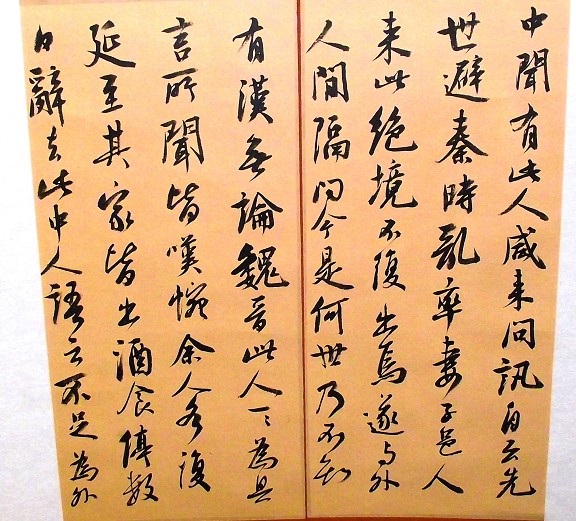 中聞有此人咸来问訊自云先
世避秦時亂率妻子邑人
来此絶境不復出焉遂与外
人間隔问今是何世乃不知
有漢無論魏晋此人一一為具
言所聞皆嘆惋余人各復
延至其家皆出酒食停数
日辭去此中人語云不足為外